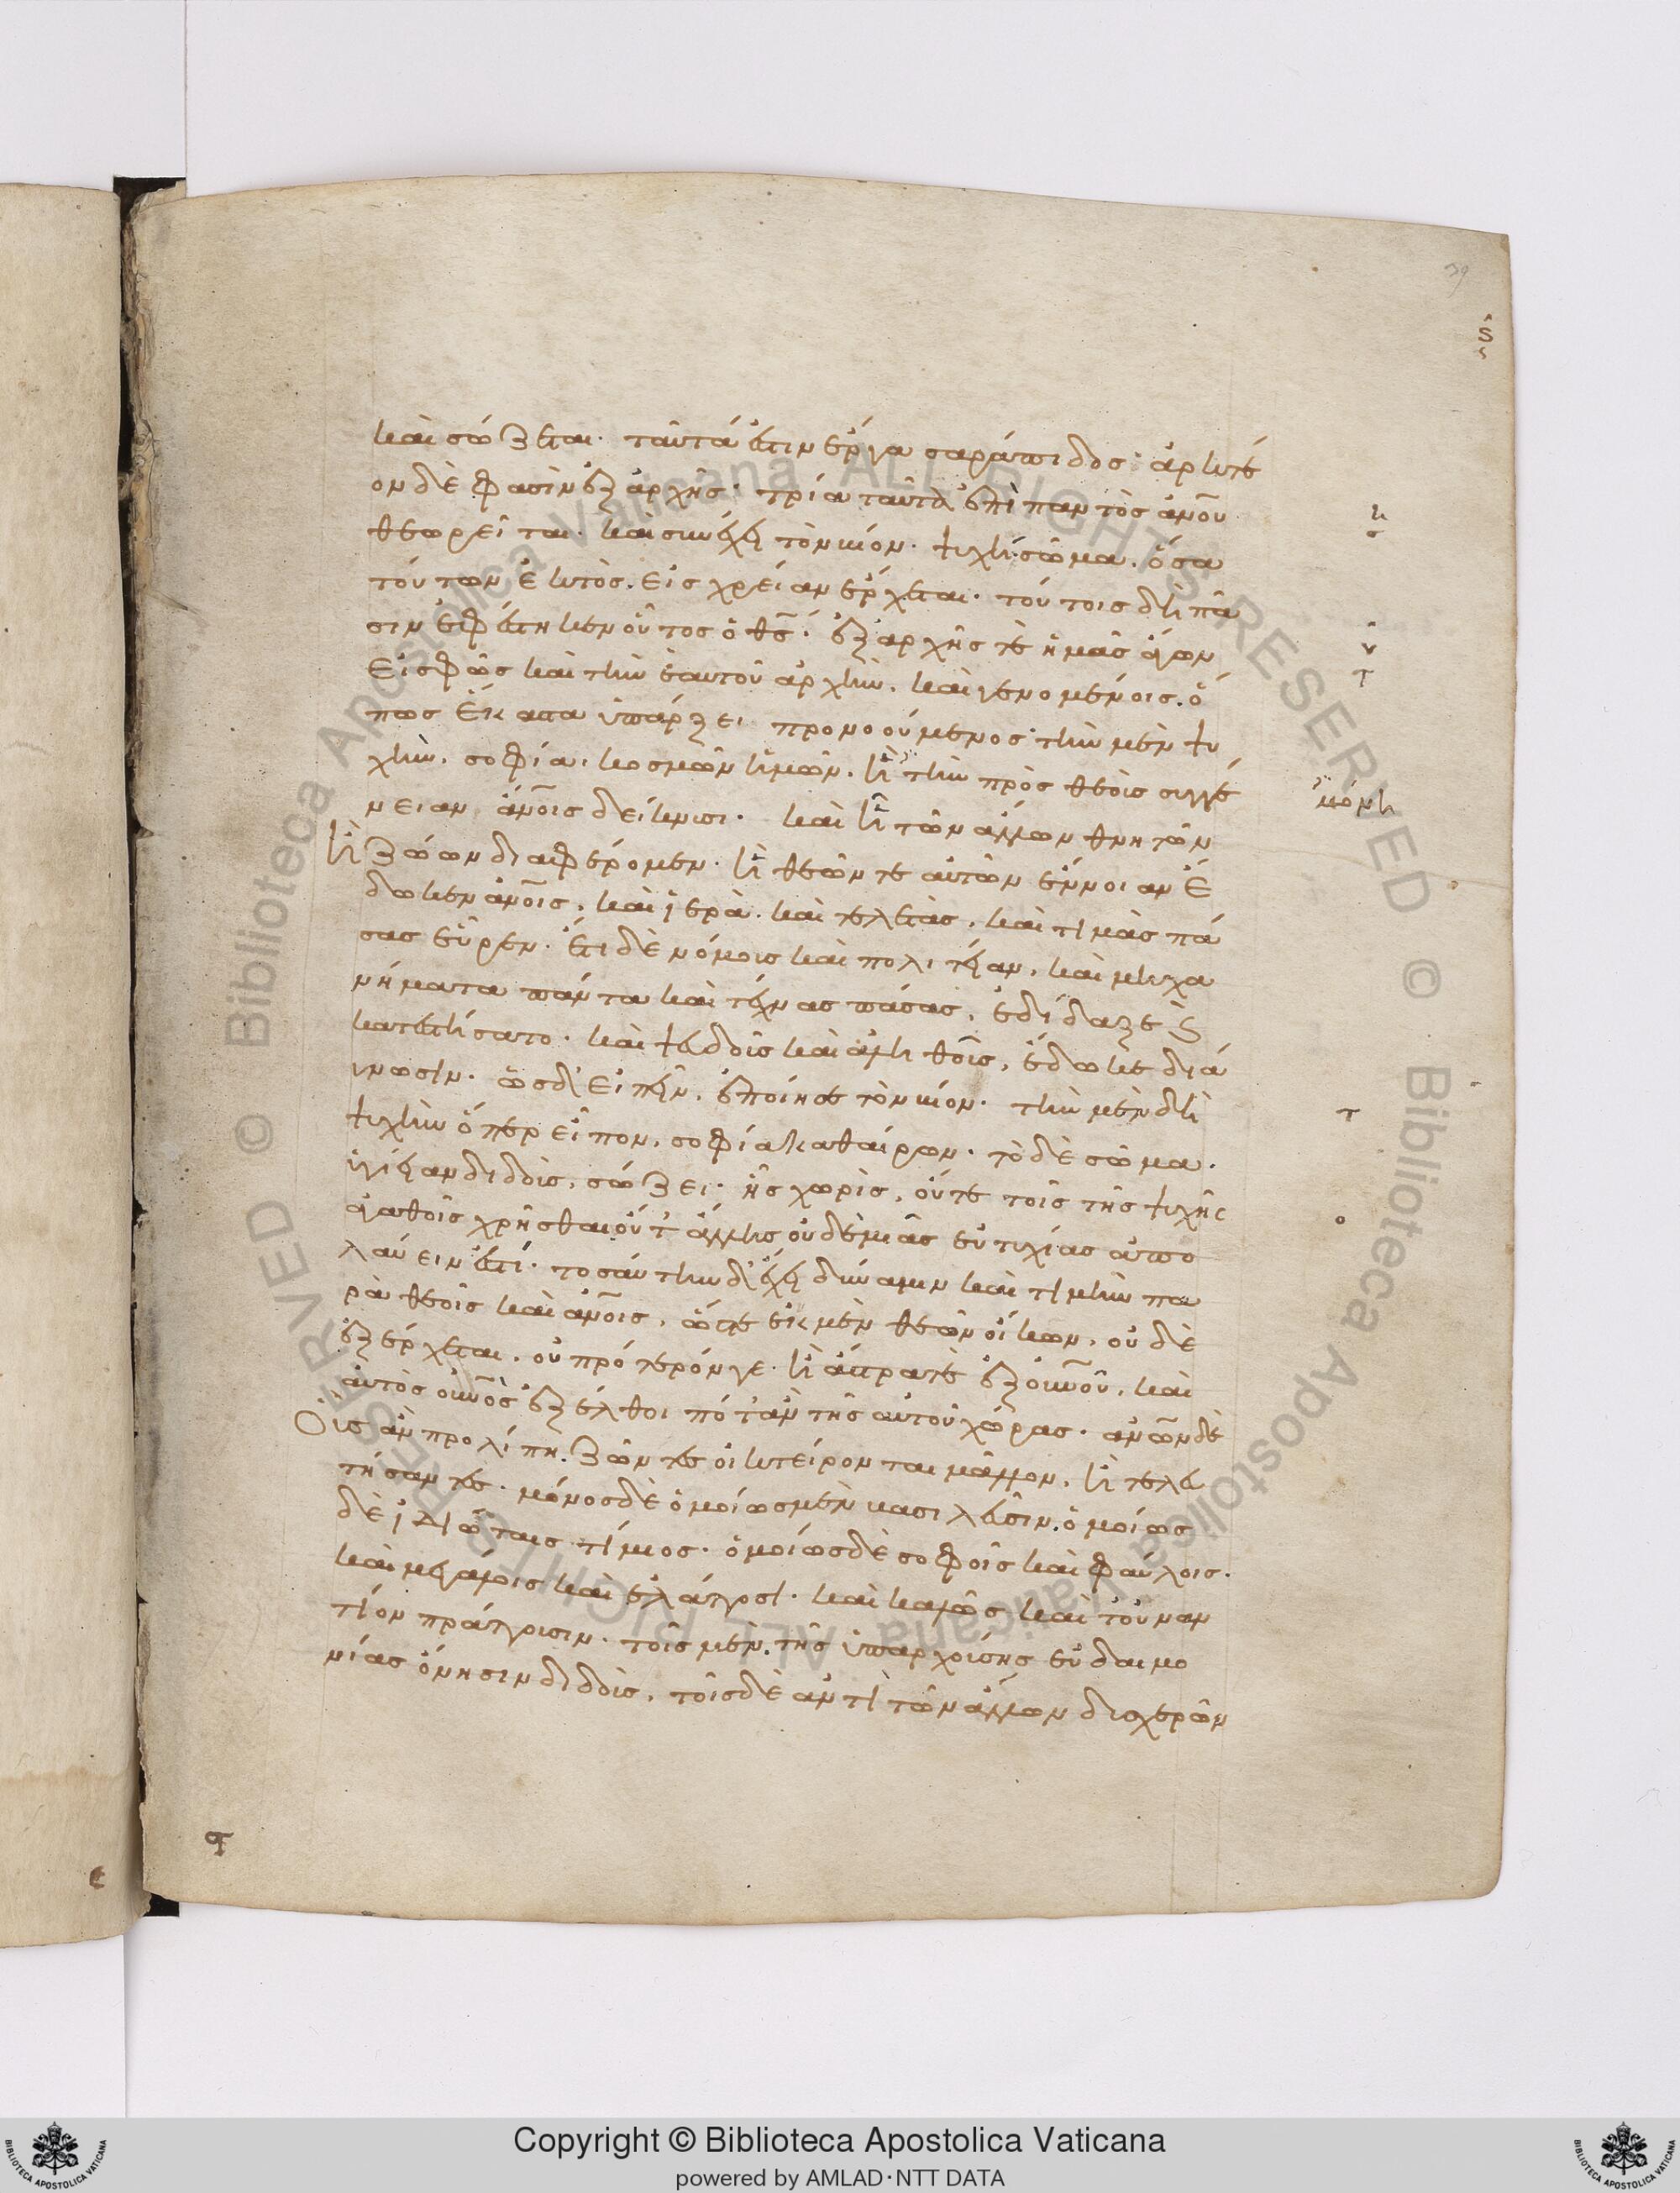 39
S
καὶ σώζεται· ταῦτά ἐστιν ἔργα σαράπιδος· ἀρκτέ
ον δέ φασὶν ἐξ ἀρχῆς· τρία ταῦτα ἐπὶ παντὸς ἀνου
θεωρεῖται· καὶ συνέχει τὸν βίον· ψυχὴ· σῶμα· ὅσα
τούτων ἐκτὸς· εἰς χρείαν ἔρχεται· τούτοις δὴ πᾶ
σιν ἐφέστηκεν οὗτος ὁ θς· ἐξ ἀρχῆς τε ἡμᾶς ἄγων
εἰς φῶς καὶ τὴν ἑαυτοῦ ἀρχὴν· καὶ γενομένοις· ὅ
πως ἕκαστα ὑπάρξει προνοούμενος· τὴν μὲν ψυ
χὴν· σοφία· κοσμῶν ἡμῶν· ἣ τὴν πρὸς θεοὺς συγγέ
μόνη
νειαν ἀνοις δείκνυσι· καὶ ἧ τῶν ἄλλων θνητῶν
ζώων διαφέρομεν· ἣ θεῶν τε αὐτῶν ἔννοιαν ἔ
δωκεν ἀνοις· καὶ ἱερὰ· καὶ τελετὰς· καὶ τιμὰς πά
σας εὗρεν· ἔτι δὲ νόμους καὶ πολιτείαν· καὶ μηχα
νήματα πάντα καὶ τέχνας πάσας· ἐδίδαξε καὶ
κατεστήσατο· καὶ ψεύδοις καὶ ἀληθοῖς, ἔδωκε διά
γνωσιν· ὡς δ' εἰπεῖν· ἐποίησε τὸν βίον· τὴν μὲν δὴ
ψυχὴν ὅπερ εἶπον· σοφία καθαίρων· τὸ δὲ σῶμα·
ὑγίειαν διδοὺς· σώζει· ἧς χωρὶς, οὔτε τοῖς τῆς ψυχῆς
ἀγαθοῖς χρῆσθαι οὔτ' ἄλλης οὐδεμιᾶς εὐτυχίας ἀπο
λαύειν ἔστι· τοσαύτην δ' ἔχει δύναμιν καὶ τιμὴν πα
ρὰ θεοῖς καὶ ἀνοις, ὥστε ἐκ μὲν θεῶν οἴκων, οὐδὲ
ἐξέρχεται· οὐ πρότερόν γε· ἢ ἄστρα τε ἐξ οὐνου, καὶ
αὐτὸς οὐνος ἐξέλθοι πότ' ἂν τῆς αὐτοῦ χώρας· ἀνων δὲ
οὓς ἂν προλίπη· ζῶντες οἰκτείρονται μᾶλλον· ἢ τελευ
τήσαντες· μόνος δὲ ὁμοίως μὲν βασιλεῦσιν· ὁμοίως
δὲ ἰδιώταις τίμιος· ὁμοίως δὲ σοφοῖς καὶ φαύλοις·
καὶ μεγάλοις καὶ ἐλάττοσι· καὶ καλῶς καὶ τοὐναν
τίον πράττουσιν· τοῖς μὲν, τῆς ὑπαρχούσης εὐδαιμο
νίας ὄνησιν διδοὺς, τοῖς δὲ ἀντὶ τῶν ἄλλων δυσχερῶν
Copyright © Biblioteca Apostolica Vaticana
powered by AMLAD·NTT DATA